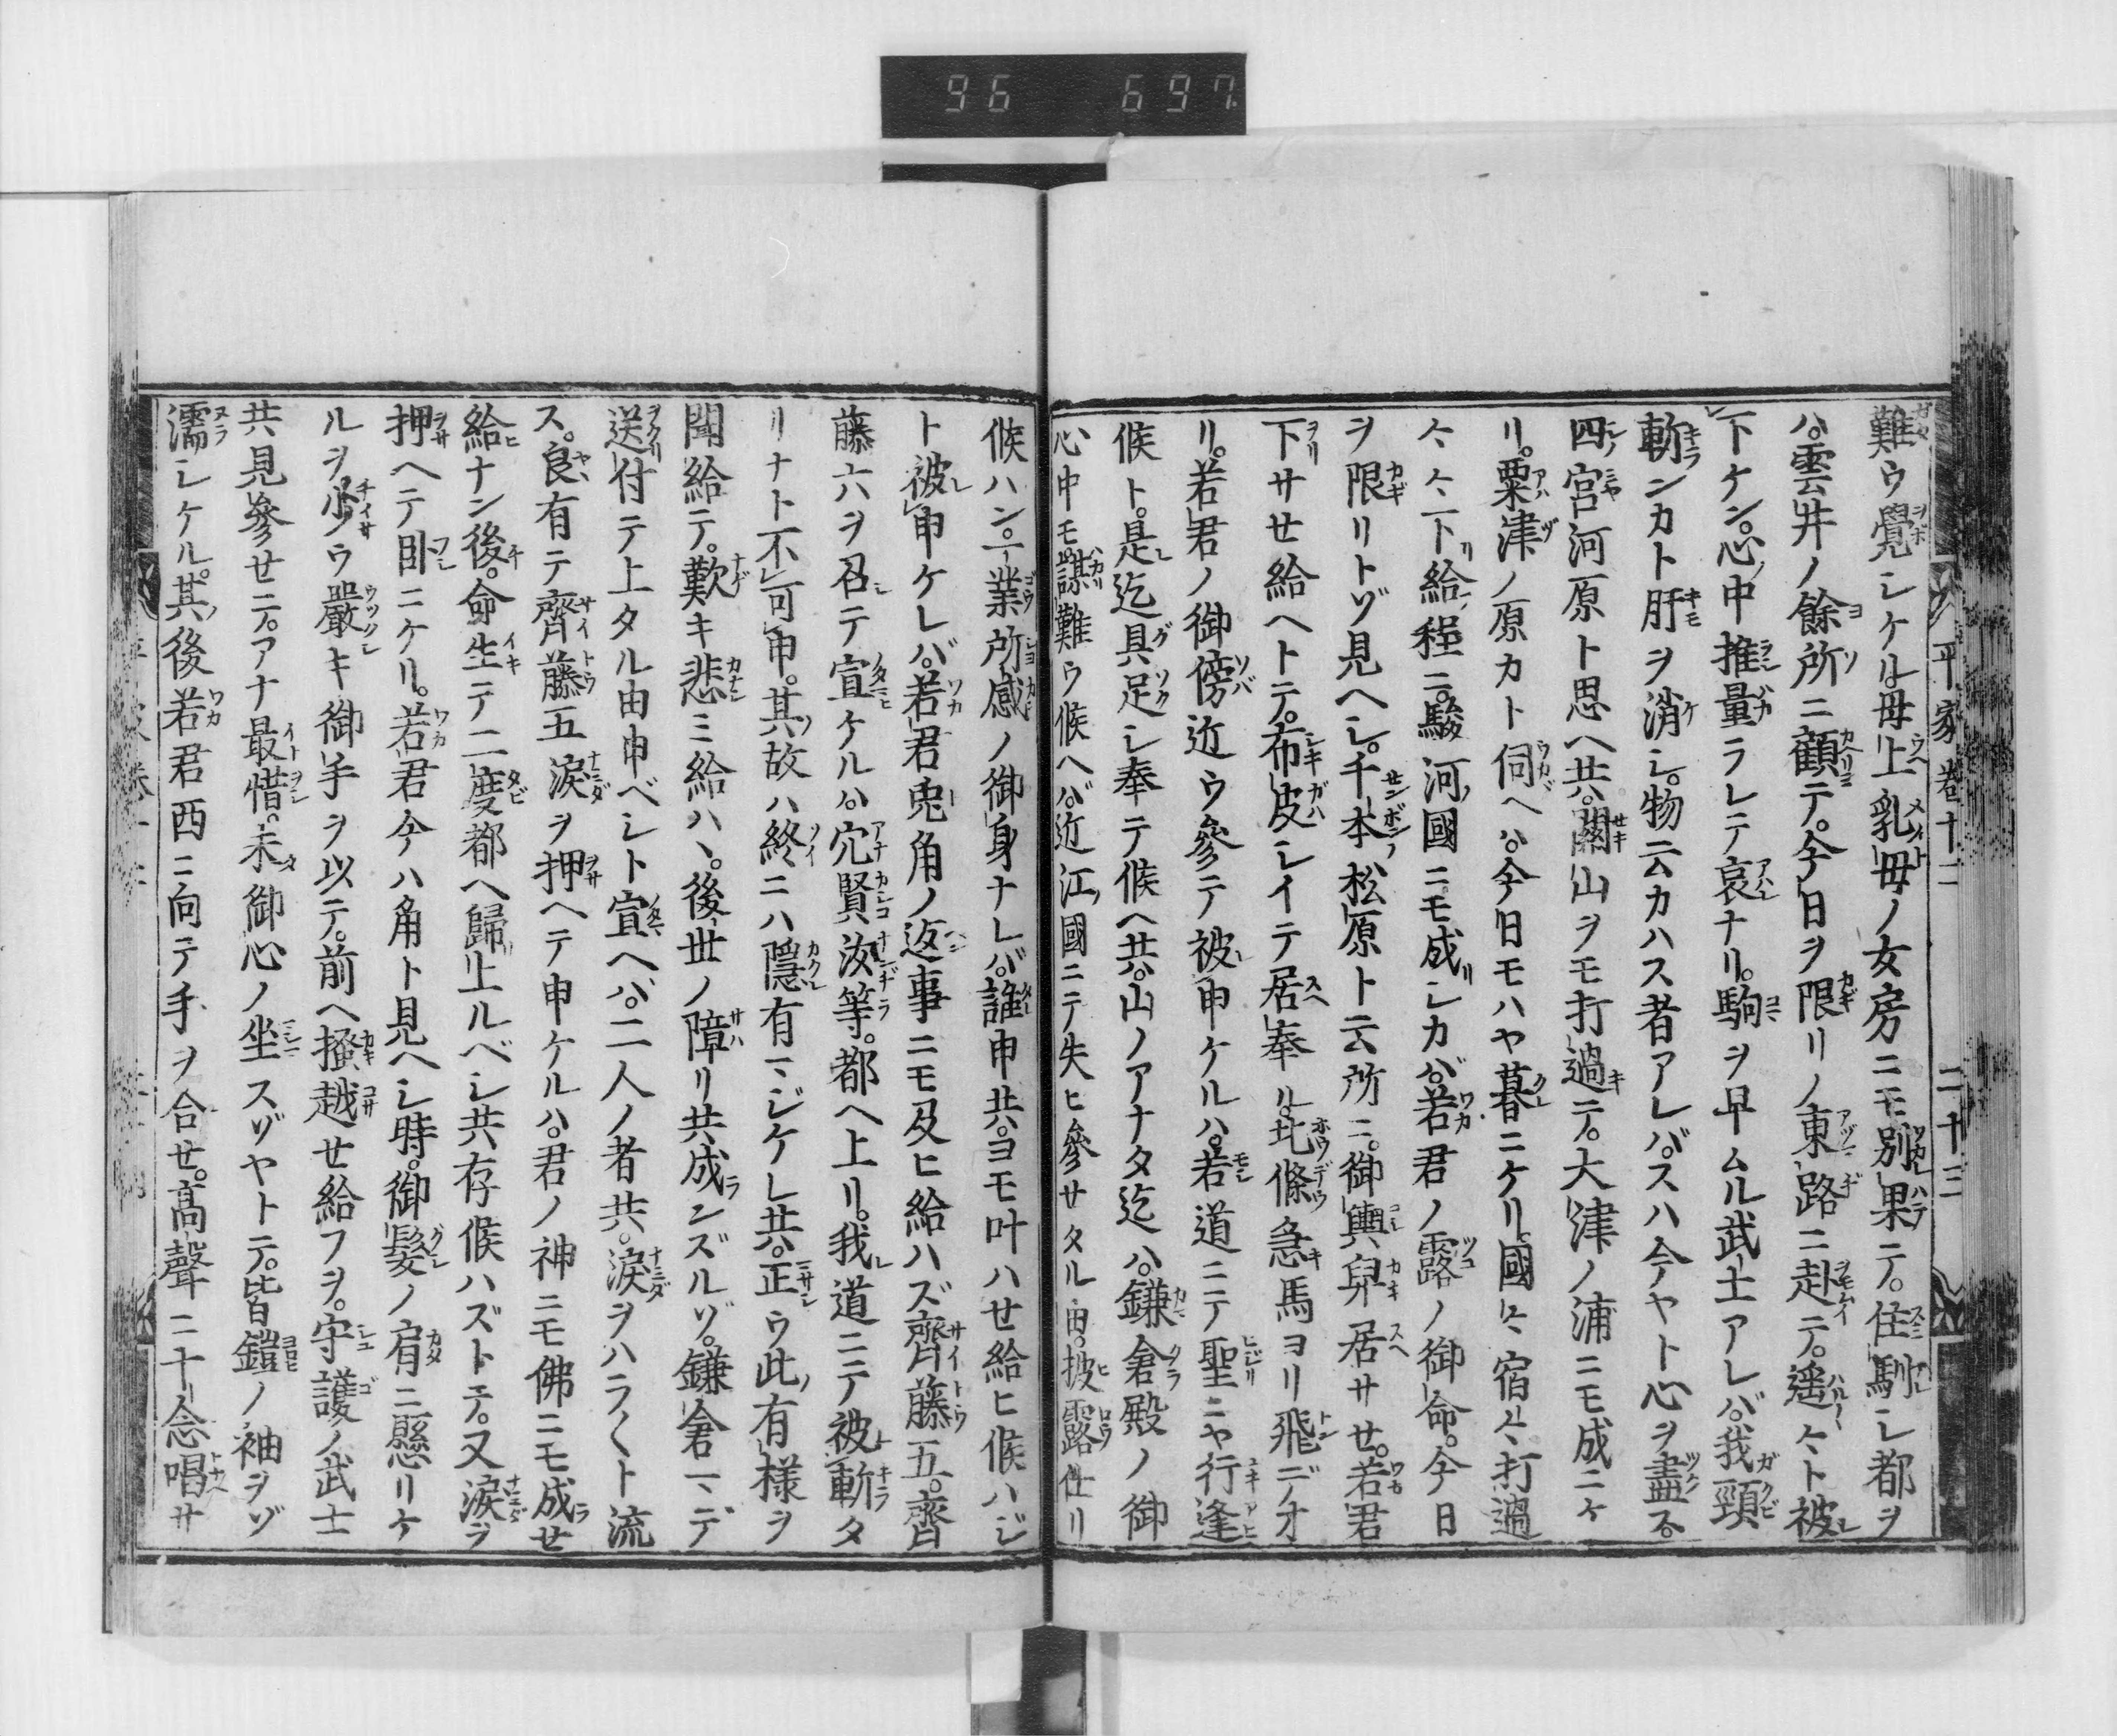 96 697
平家巻十二 二十三
難ウ覺シケル母上乳母ノ女房ニモ別果テ。住馴シ都ヲ
ハ。雲井ノ餘所ニ顧テ。今日ヲ限リノ東路ニ赴テ。遥々ト被
下ケン。心ノ中推量ラレテ哀ナリ。駒ヲ早ムル武士アレバ。我頸
斬ンカト肝ヲ消シ。物云カハス者アレバ。スハ今ヤト心ヲ盡ス。
四宮河原ト思ヘ共。關山ヲモ打過テ。大津ノ浦ニモ成ニケ
リ。粟津ノ原カト伺ヘハ。今日モハヤ暮ニケリ。國々宿々打過
々々下リ給フ程ニ。駿河ノ國ニモ成リシカバ。若君ノ露ノ御命。今日
ヲ限リトゾ見ヘシ。千本ノ松原ト云所ニ。御輿舁居サせ。若君
下サせ給ヘトテ。布皮シイテ居奉ル。北條急キ馬ヨリ飛デオ
リ。若君ノ御傍近ウ參テ被申ケルハ。若道ニテ聖ニヤ行逢
候ト。是迄具足シ奉テ候ヘ共。山ノアナタ迄ハ。鎌倉殿ノ御
心中モ難謀ウ候ヘバ。近江ノ國ニテ失ヒ參サタル由。披露仕リ
候ハン。一業所感ノ御身ナレバ。誰申共。ヨモ叶ハせ給ヒ候ハジ
ト被申ケレバ。若君兎角ノ返事ニモ及ヒ給ハズ齊藤五。齊
藤六ヲ召テ宣ケルハ。穴賢汝等。都ヘ上リ。我道ニテ被斬タ
リナト不可申。其故ハ終ニハ隱有マジケレ共。正ウ此有様ヲ
聞給テ。歎キ悲ミ給ハヽ。後世ノ障リ共成ランズルゾ。鎌倉マデ
送付テ上タル由申ベシト宣ヘハ。二人ノ者共。涙ヲハラ〳〵ト流
ス。良有テ齊藤五涙ヲ押ヘテ申ケルハ。君ノ神ニモ佛ニモ成せ
給ナン後。命生テ二度都ヘ歸上ルベシ共存候ハズトテ。又涙ヲ
押ヘテ臥ニケリ。若君今ハ角ト見ヘシ時。御髮ノ肩ニ懸リケ
ルヲ。少ウ嚴キ御手ヲ以テ。前ヘ掻越せ給フヲ。守護ノ武士
共見參せテ。アナ最惜。未御心ノ坐スゾヤトテ。皆鎧ノ袖ヲゾ
濡シケル。其後若君西ニ向テ手ヲ合せ。髙聲ニ十念唱サ